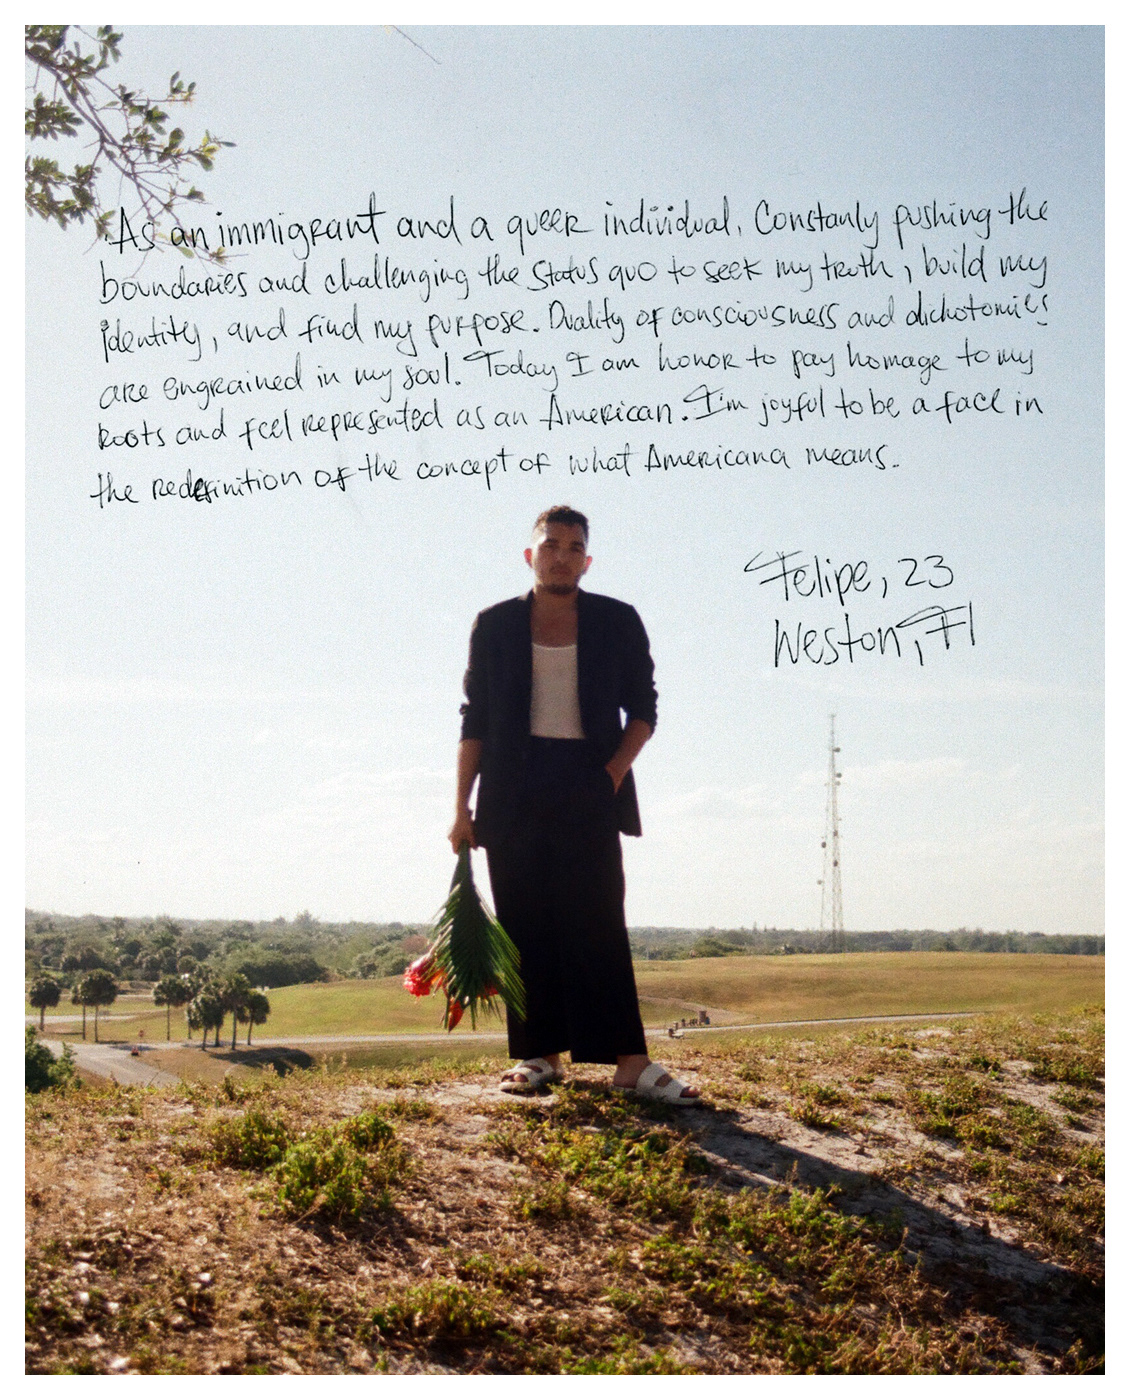 As an immigrant and a queer individual. Constanly pushing the
boundaries and challenging the status quo to seek my truth, build my
identity, and find my purpose. Duality of consciousness and dichotomies
are engrained in my soul. Today I am honor to pay homage to my
roots and feel represented as an American. I'm joyful to be a face in
the redefinition of the concept of what Americana means.
Felipe, 23
Weston, Fl